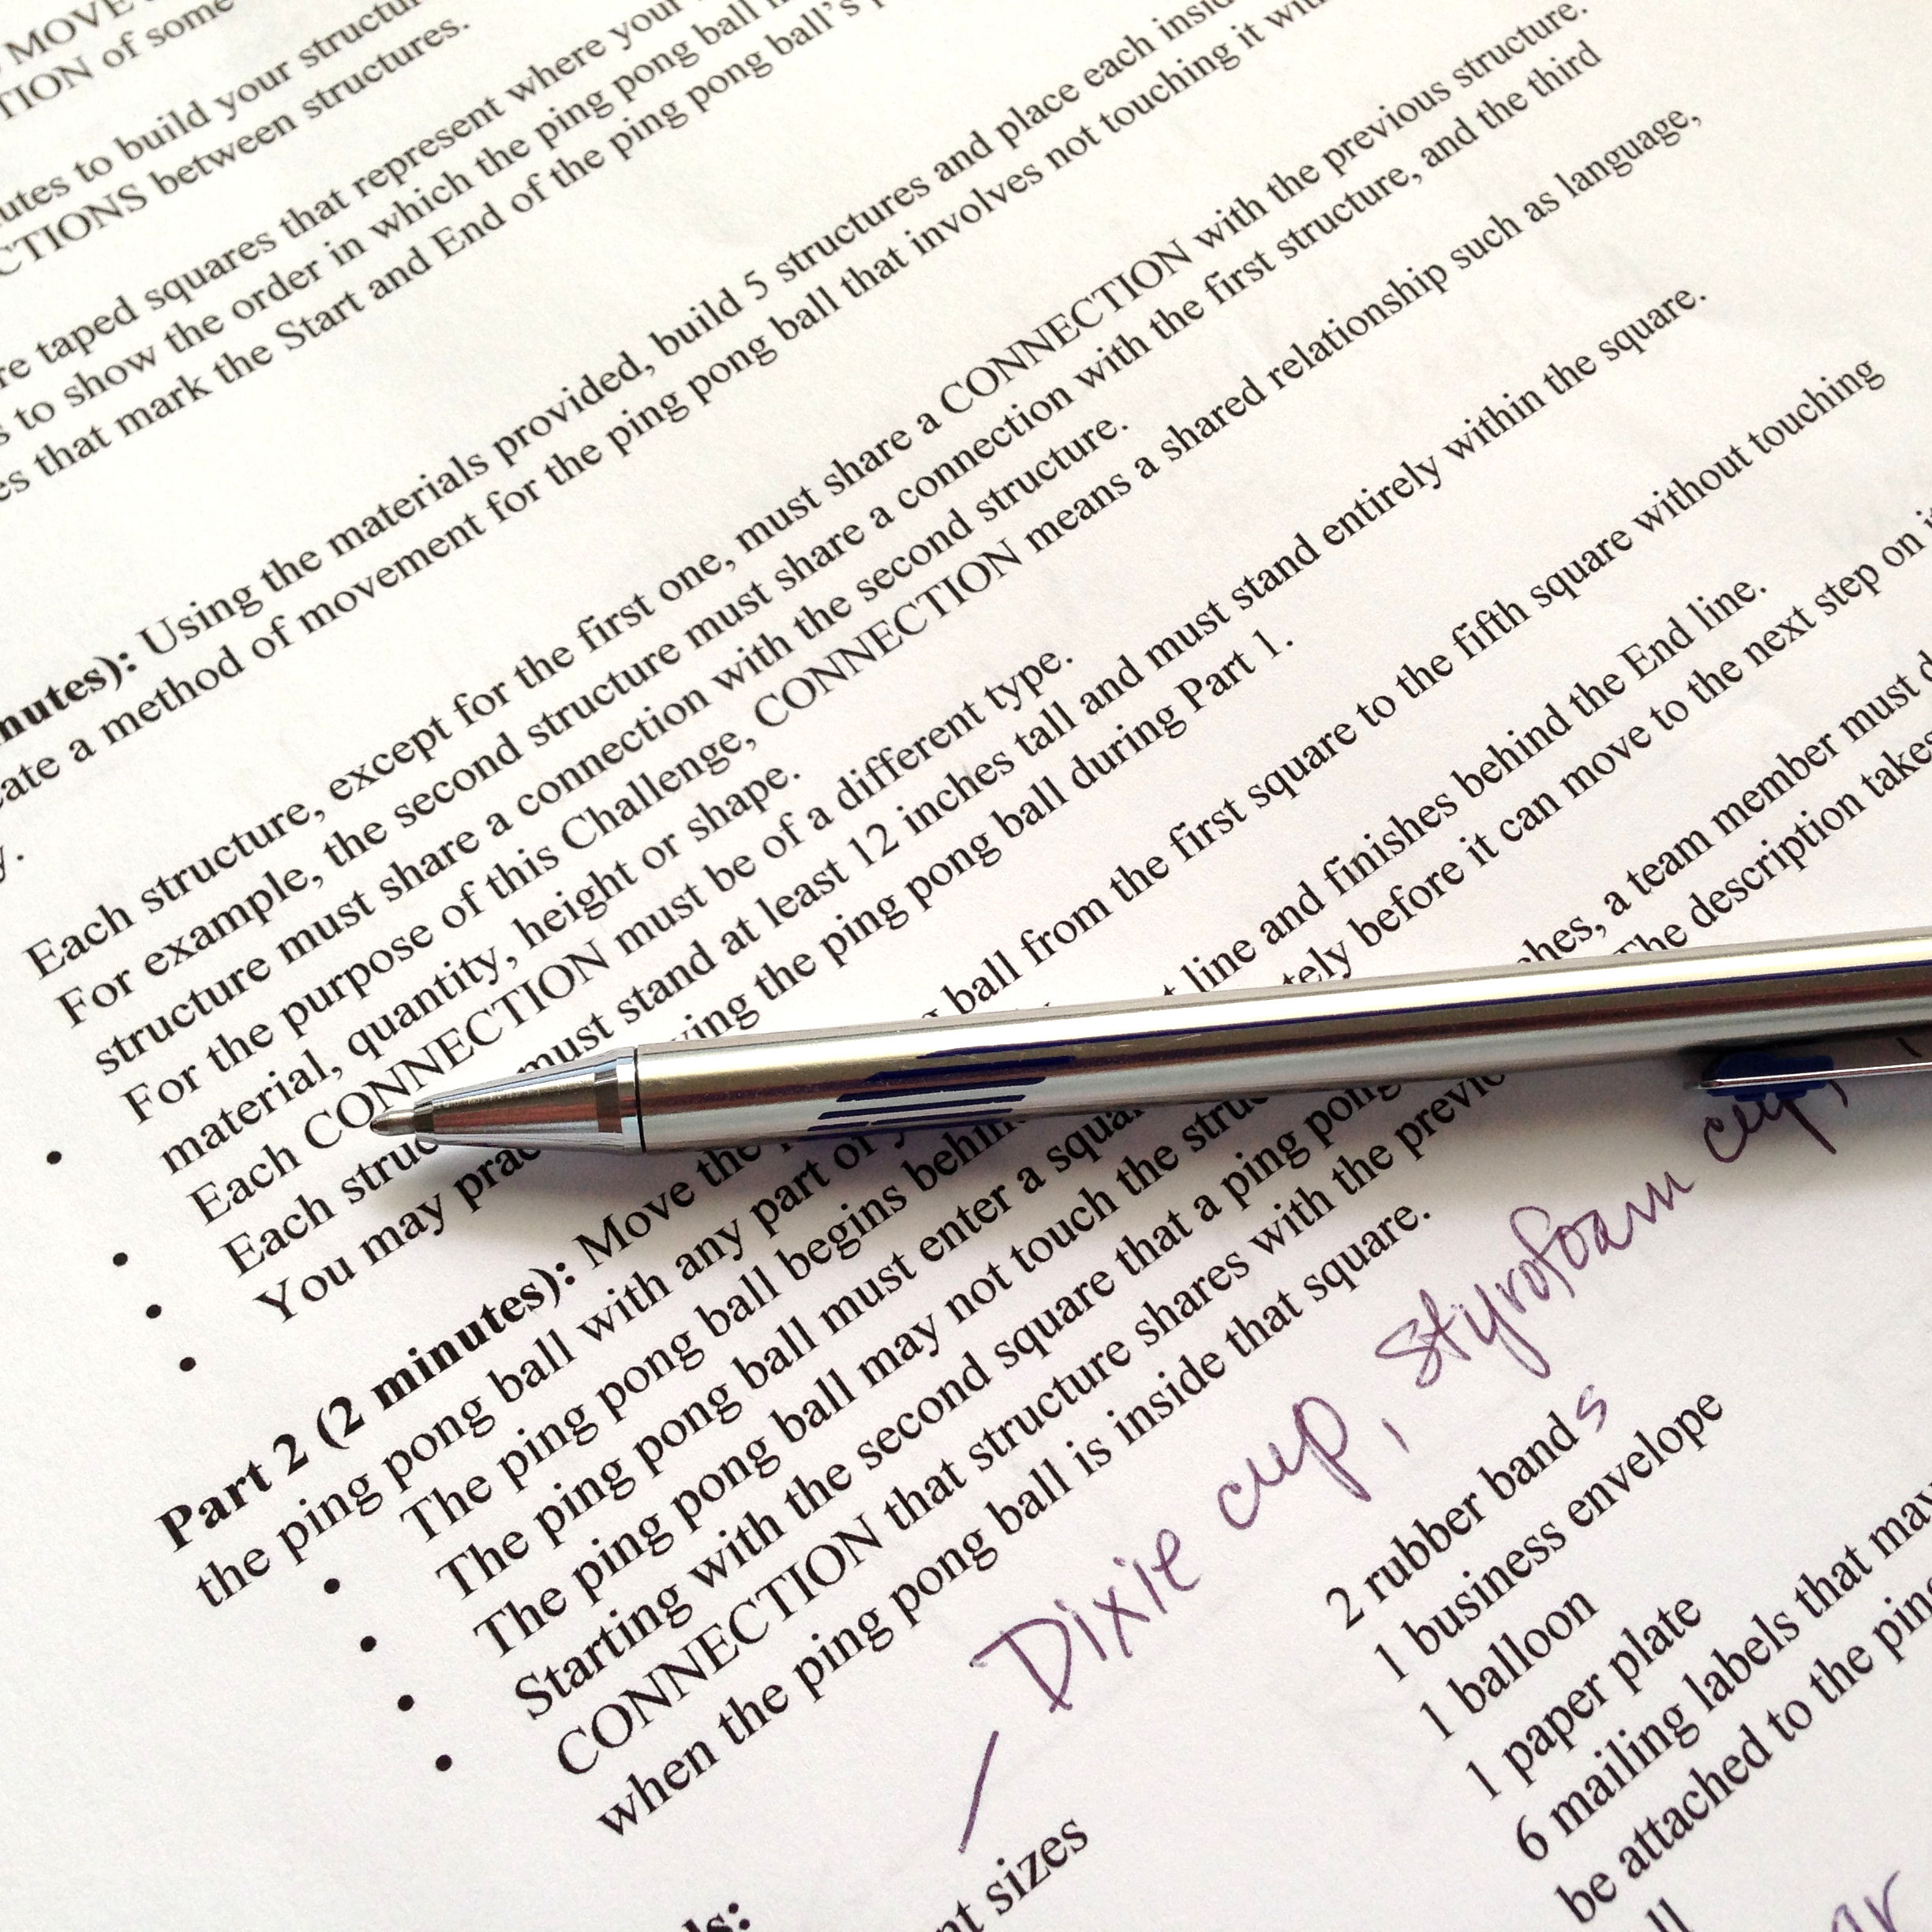 MOVE
TION of some
utes to build your structu
CTIONS between structures.
re taped squares that represent where your
s to show the order in which the ping pong ball
es that mark the Start and End of the ping pong ball's
nutes): Using the materials provided, build 5 structures and place each insid
eate a method of movement for the ping pong ball that involves not touching it wi
y.
Each structure, except for the first one, must share a CONNECTION with the previous structure.
For example, the second structure must share a connection with the first structure, and the third
structure must share a connection with the second structure.
• For the purpose of this Challenge, CONNECTION means a shared relationship such as language,
material, quantity, height or shape.
• Each CONNECTION must be of a different type.
• Each struc must stand at least 12 inches tall and must stand entirely within the square.
• You may prac ing the ping pong ball during Part 1.
Part 2 (2 minutes): Move the ball from the first square to the fifth square without touching
the ping pong ball with any part of
• The ping pong ball begins behin line and finishes behind the End line.
• The ping pong ball must enter a squar tely before it can move to the next step on it
• The ping pong ball may not touch the struc
• Starting with the second square that a ping pong ches, a team member must d
CONNECTION that structure shares with the previo The description takes
when the ping pong ball is inside that square.
Dixie cup, styrofoam cup,
2 rubber bands
1 business envelope
1 balloon
1 paper plate
6 mailing labels that may
be attached to the ping
ll
ls:
nt sizes